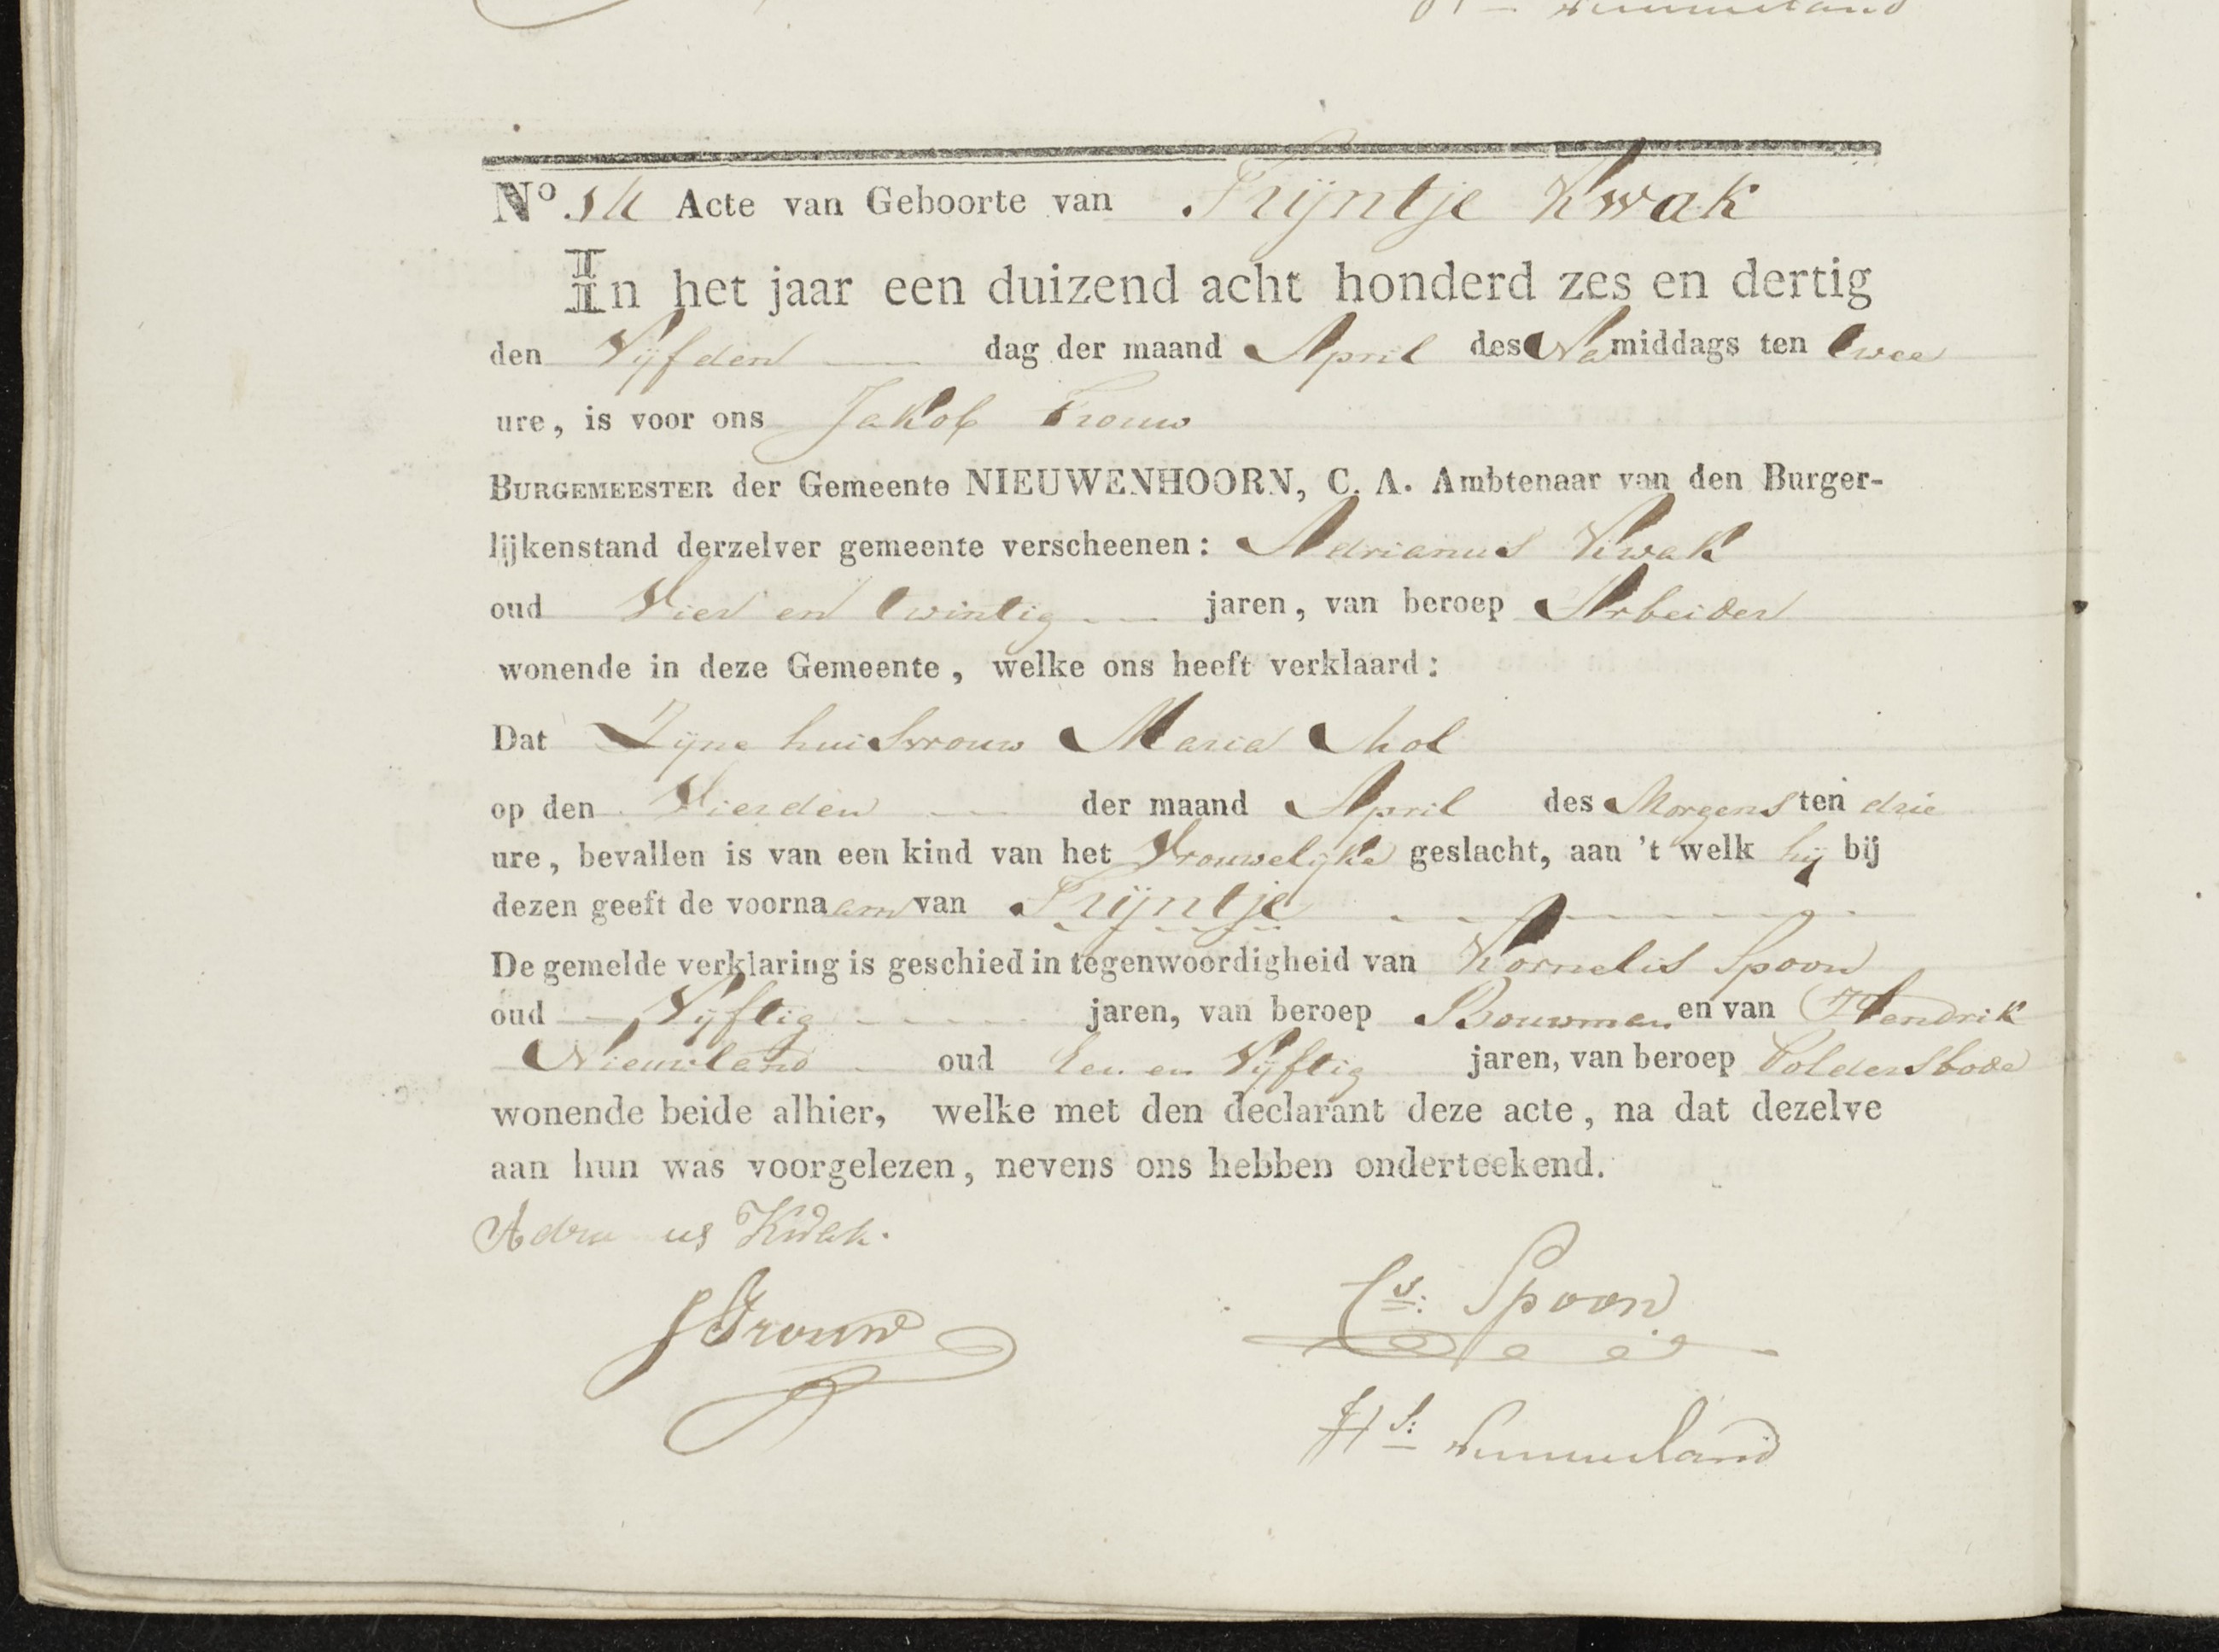 No. 14 Acte van Geboorte van Trijntje Kwak
In het jaar een duizend acht honderd zes en dertig
den Vijfden dag der maand April des Na middags ten twee
ure, is voor ons Jakob Trouw
BURGEMEESTER der Gemeente NIEUWENHOORN, C. A. Ambtenaar van den Burger-
lijkenstand derzelver gemeente verscheenen: Adrianus Kwak
oud Vier en twintig jaren, van beroep Arbeider
wonende in deze Gemeente, welke ons heeft verklaard:
Dat Zijne huisvrouw Maria Mol
op den Vierden der maand April des Morgens ten drie
ure, bevallen is van een kind van het Vrouwelijke geslacht, aan 't welk hij bij
dezen geeft de voornaam van Trijntje
De gemelde verklaring is geschied in tegenwoordigheid van Kornelis Spoon
oud Vijftig jaren, van beroep Bouwman en van Hendrik
Nieuwland oud Een en Vijftig jaren, van beroep Poldersbode
wonende beide alhier, welke met den declarant deze acte, na dat dezelve
aan hun was voorgelezen, nevens ons hebben onderteekend.
Adrianus Kwak.
Cs: Spoon
J Trouw
Hk: Nieuwland